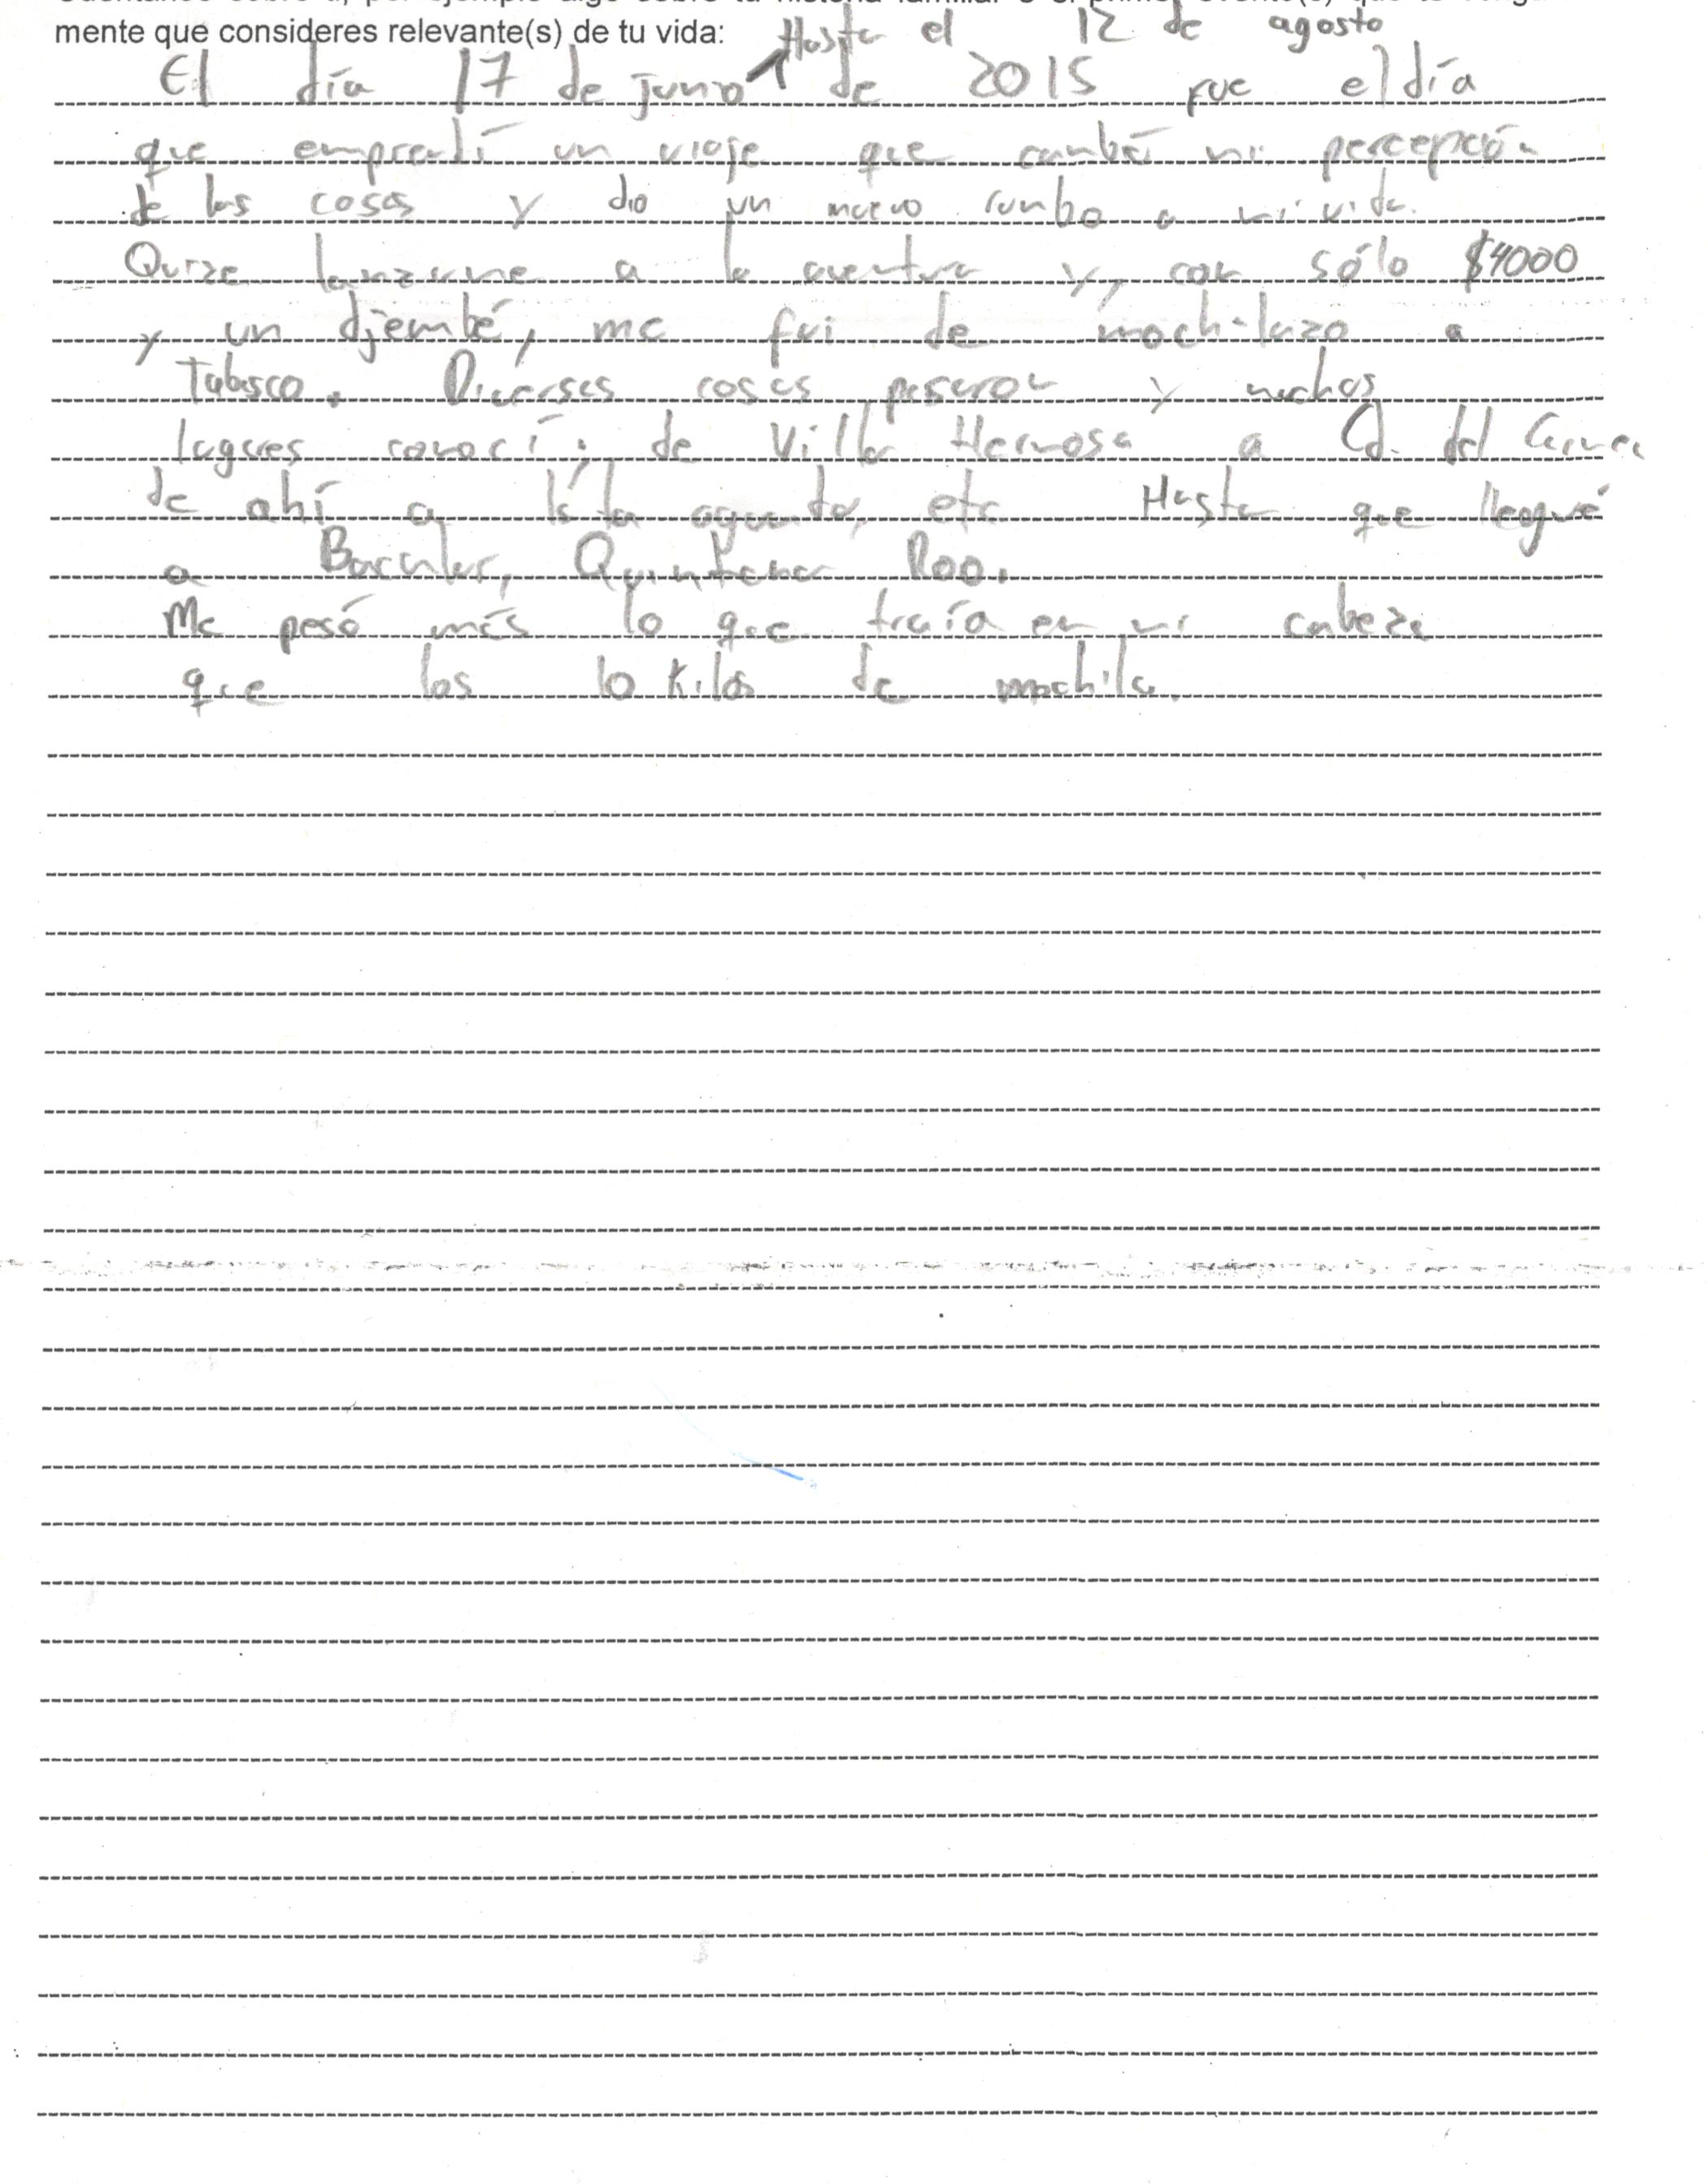 mente que consideres relevante(s) de tu vida:
Hasta el 12 de agosto
El día 17 de junio de 2015 fue el día
que emprendí un viaje que cambió mi percepción
de las cosas y dio un nuevo rumbo a mi vida.
Quize lanzarme a la aventura y, con sólo $4000
y un djembé, me fui de mochilazo a
Tabasco. Diversas cosas pasaron y muchos
lugares conocí: de Villa Hermosa a Cd. del Carmen
de ahí a Isla aguada, etc Hasta que llegué
a Bacalar, Quintana Roo.
Me pesó más lo que traía en mi cabeza
que los 10 kilos de mochila.